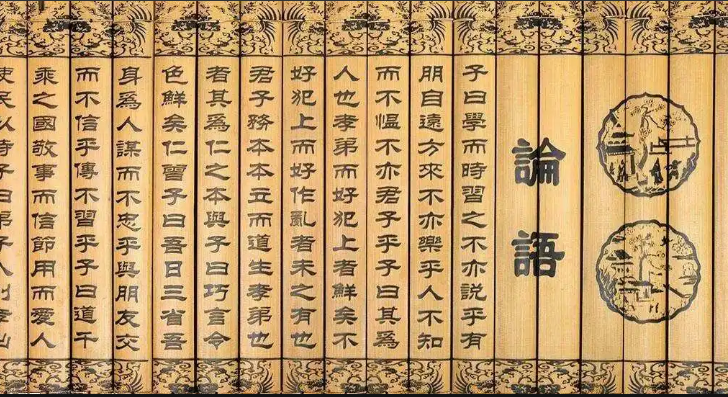 論語
子曰學而時習之不亦説乎有
朋自遠方來不亦樂乎人不知
而不慍不亦君子乎子曰其爲
人也孝弟而好犯上者鮮矣不
好犯上而好作亂者未之有也
君子務本本立而道生孝弟也
者其爲仁之本與子曰巧言令
色鮮矣仁曾子曰吾日三省吾
身爲人謀而不忠乎與朋友交
而不信乎傳不習乎子曰道千
乘之國敬事而信節用而愛人